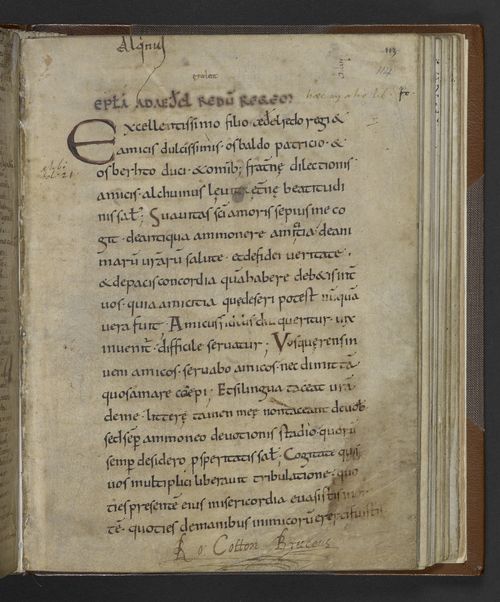 113
EPLA AD AEDEL REDU REGEM
Excellentissimo filio aedelredo regi &
amicis dulcissimis · osbaldo patricio · &
osberhto duci · & omib; fratnę dilectionis
amicis · alchuinus leuita ętnę beatitudi
nis sal; Suauitas sci amoris sepius me co
git · de antiqua ammonere amicitia · de ani
maru urāru salute · et de fidei ueritate ·
& de pacis concordia quā habere debetis int
uos · quia amicitia quę deseri potest nūquā
uera fuit; Amicus fidelis diu queritur · uix
inuenit · difficile seruatur; Vos querens in
ueni amicos · seruabo amicos · nec dimittā
quos amare coepi · Et si lingua taceat urā
deme · litterę tamen męę non taceant deuob
sed semp ammoneo deuotionis studio · quorū
semp desidero psperitatis sal; Cogitate quis
uos multiplici liberauit tribulatione · quo
ties presentē eius misericordia euasistis mor
tē · quoties de manibus inimicorū
Ro: Cotton Bruceus